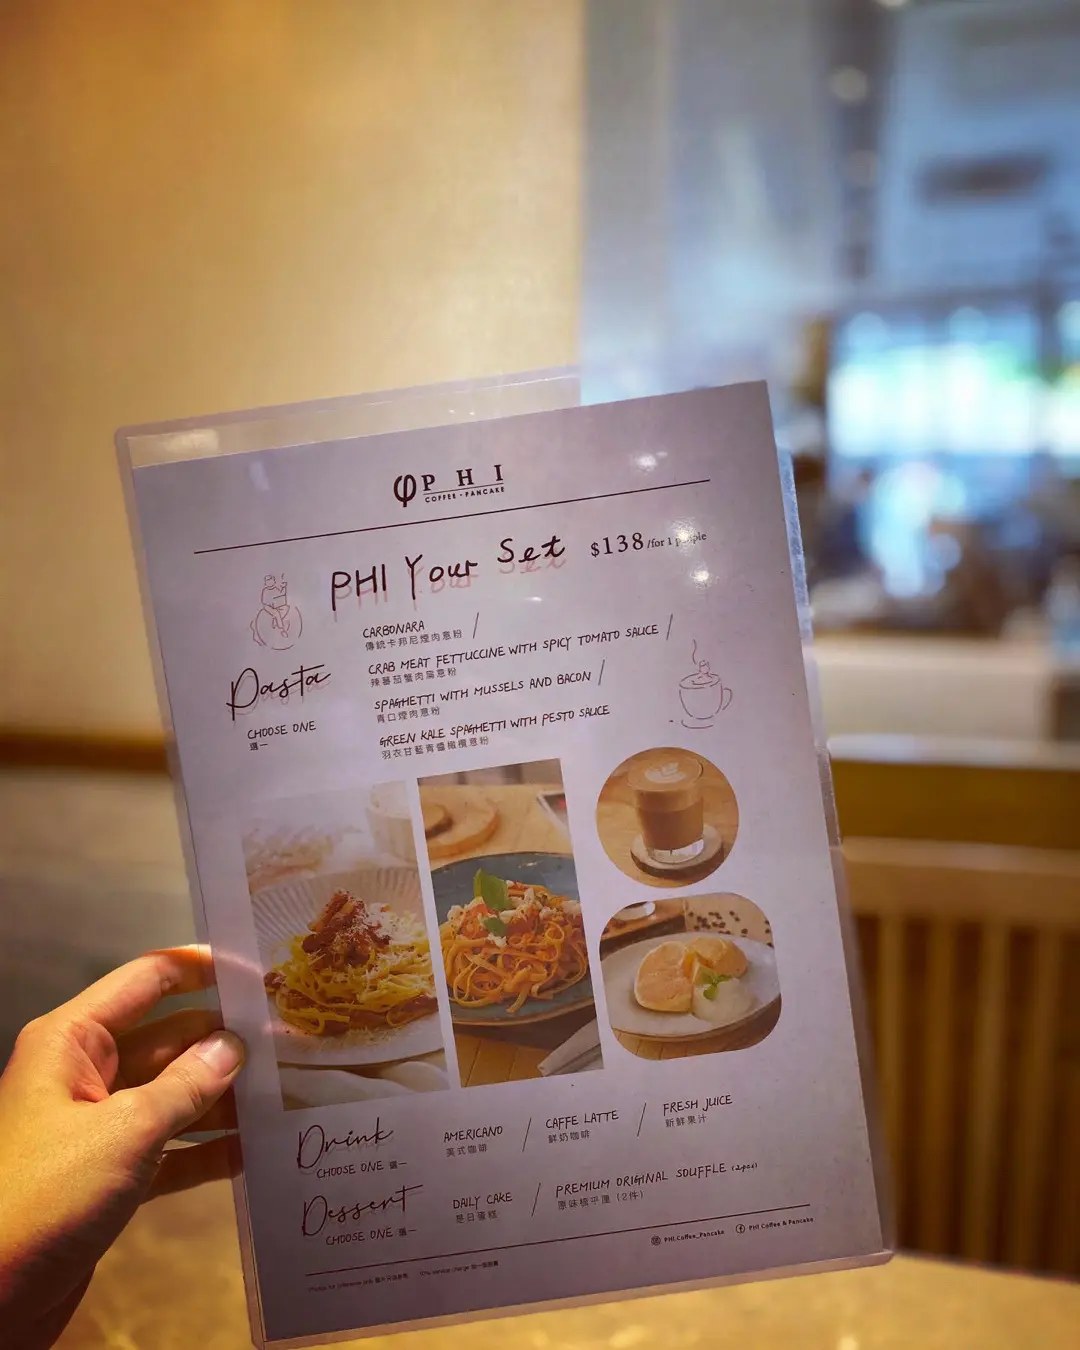 φ PHI
COFFEE · PANCAKE
PHI Your Set $138/for 1 people
Pasta
CHOOSE ONE
選一
CARBONARA /
傳統卡邦尼煙肉意粉
CRAB MEAT FETTUCCINE WITH SPICY TOMATO SAUCE /
辣蕃茄蟹肉扁意粉
SPAGHETTI WITH MUSSELS AND BACON /
青口煙肉意粉
GREEN KALE SPAGHETTI WITH PESTO SAUCE
羽衣甘藍青醬橄欖意粉
Drink
CHOOSE ONE 選一
AMERICANO / CAFFE LATTE / FRESH JUICE
美式咖啡 鮮奶咖啡 新鮮果汁
Dessert
CHOOSE ONE 選一
DAILY CAKE / PREMIUM ORIGINAL SOUFFLE (2pcs)
是日蛋糕 原味梳乎厘 (2件)
PHI.Coffee_Pancake PHI Coffee & Pancake